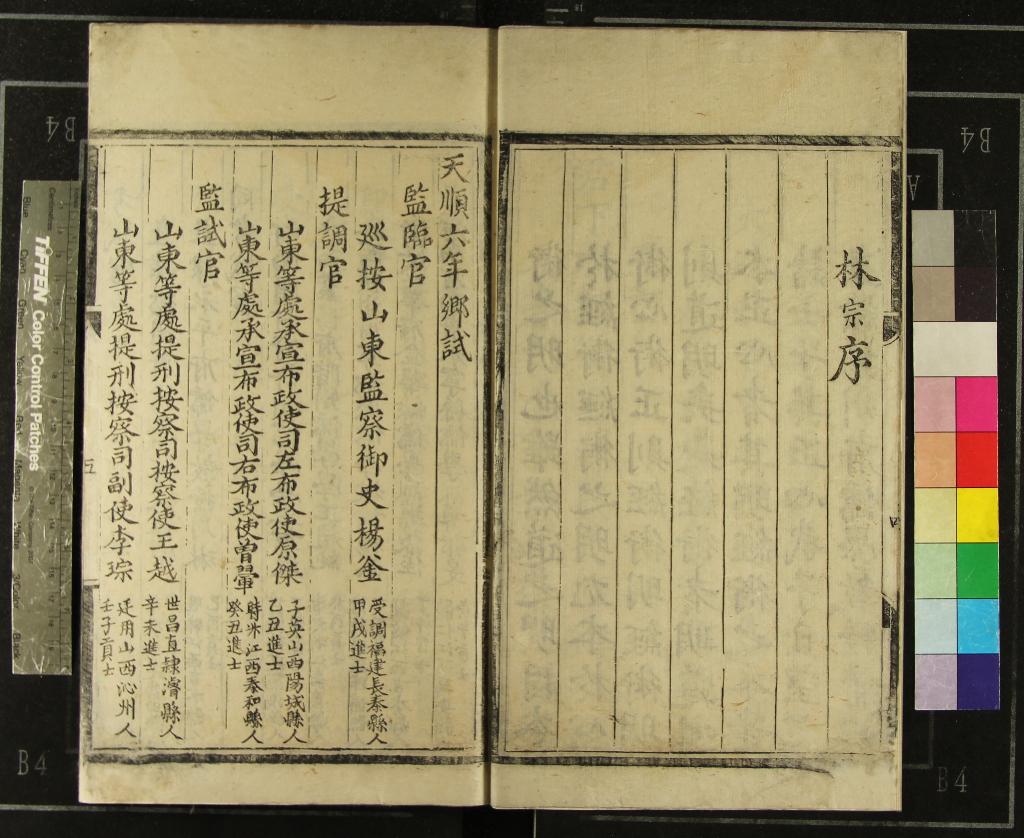 林宗序
天順六年鄉試
監臨官
廵按山東監察御史楊釜
受調福建長泰縣人
甲戌進士
提調官
山東等處承宣布政使司左布政使原傑
子英山西陽城縣人
乙丑進士
山東等處承宣布政使司右布政使曾翬
時升江西泰和縣人
癸丑進士
監試官
山東等處提刑按察司按察使王越
世昌直隸濬縣人
辛未進士
山東等處提刑按察司副使李琮
廷用山西沁州人
壬子貢士
五
B4
B4
B4
B4
A
TIFFEN Color Control Patches